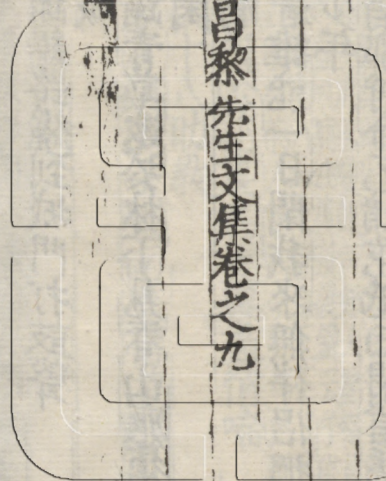 昌黎先生文集卷之九